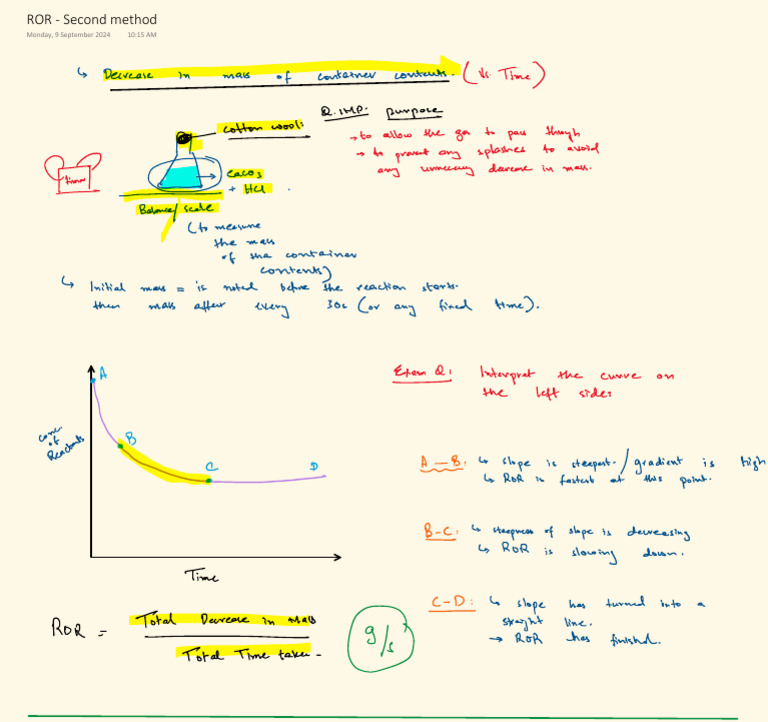 ROR - Second method
Monday, 9 September 2024 10:15 AM
↳ Decrease in mass of container contents. (Vs. Time)
Q. IMP. purpose
cotton wool:
→ to allow the gas to pass through
→ to prevent any splashes to avoid
any decrease in mass.
timer
CaCO3
+ HCl
Balance/scale
(to measure
the mass
of the container
contents)
↳ Initial mass = is noted before the reaction starts.
then mass after every 30s (or any fixed time).
A
B
C
D
conc.
of
Reactants
Time
Exam Q: Interpret the curve on
the left side:
A-B: ↳ slope is steepest. / gradient is high
↳ ROR is fastest at this point.
B-C: ↳ steepness of slope is decreasing
↳ ROR is slowing down.
C-D: ↳ slope has turned into a
straight line.
→ ROR has finished.
ROR = Total Decrease in Mass
Total Time taken
g/s